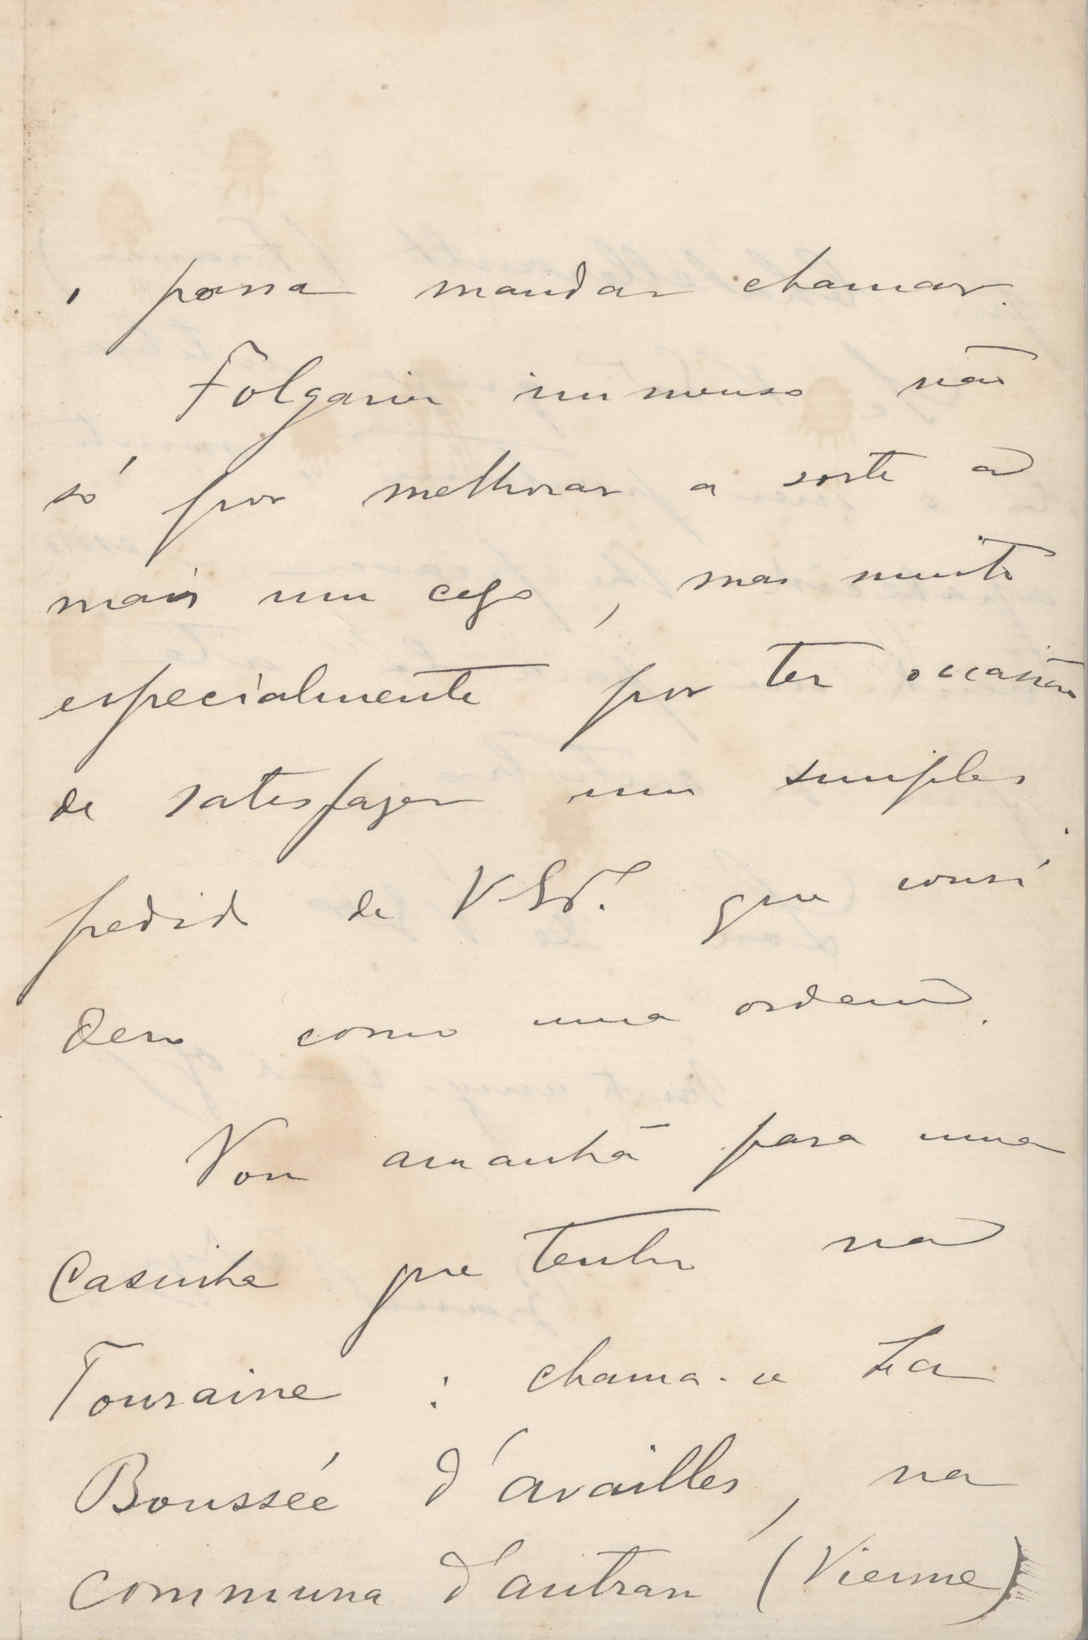 o possa mandar chamar.
Folgaria immenso não
só por melhorar a sorte a
mais um cego, mas muito
especialmente por ter occasião
de satisfazer um simples
pedido de V Exª. que consi
dero como uma ordem.
Vou amanhã para uma
casinha que tenho na
Touraine: chama-se La
Boussée d'availles, na
communa d'antran (Vienne)